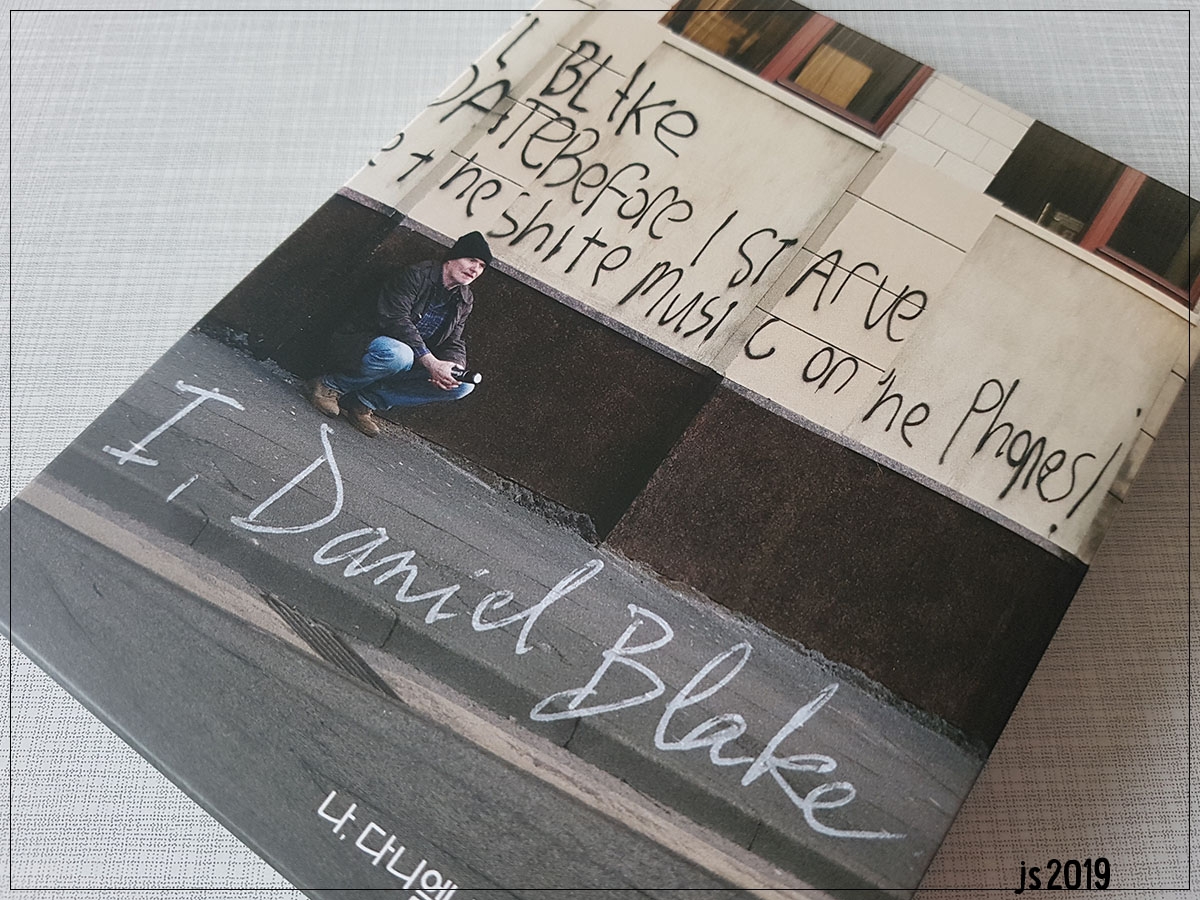 L BLake
DAtEBefore I STArve
e t he shite music on he Phones!
I, Daniel Blake
나, 다니엘
js 2019